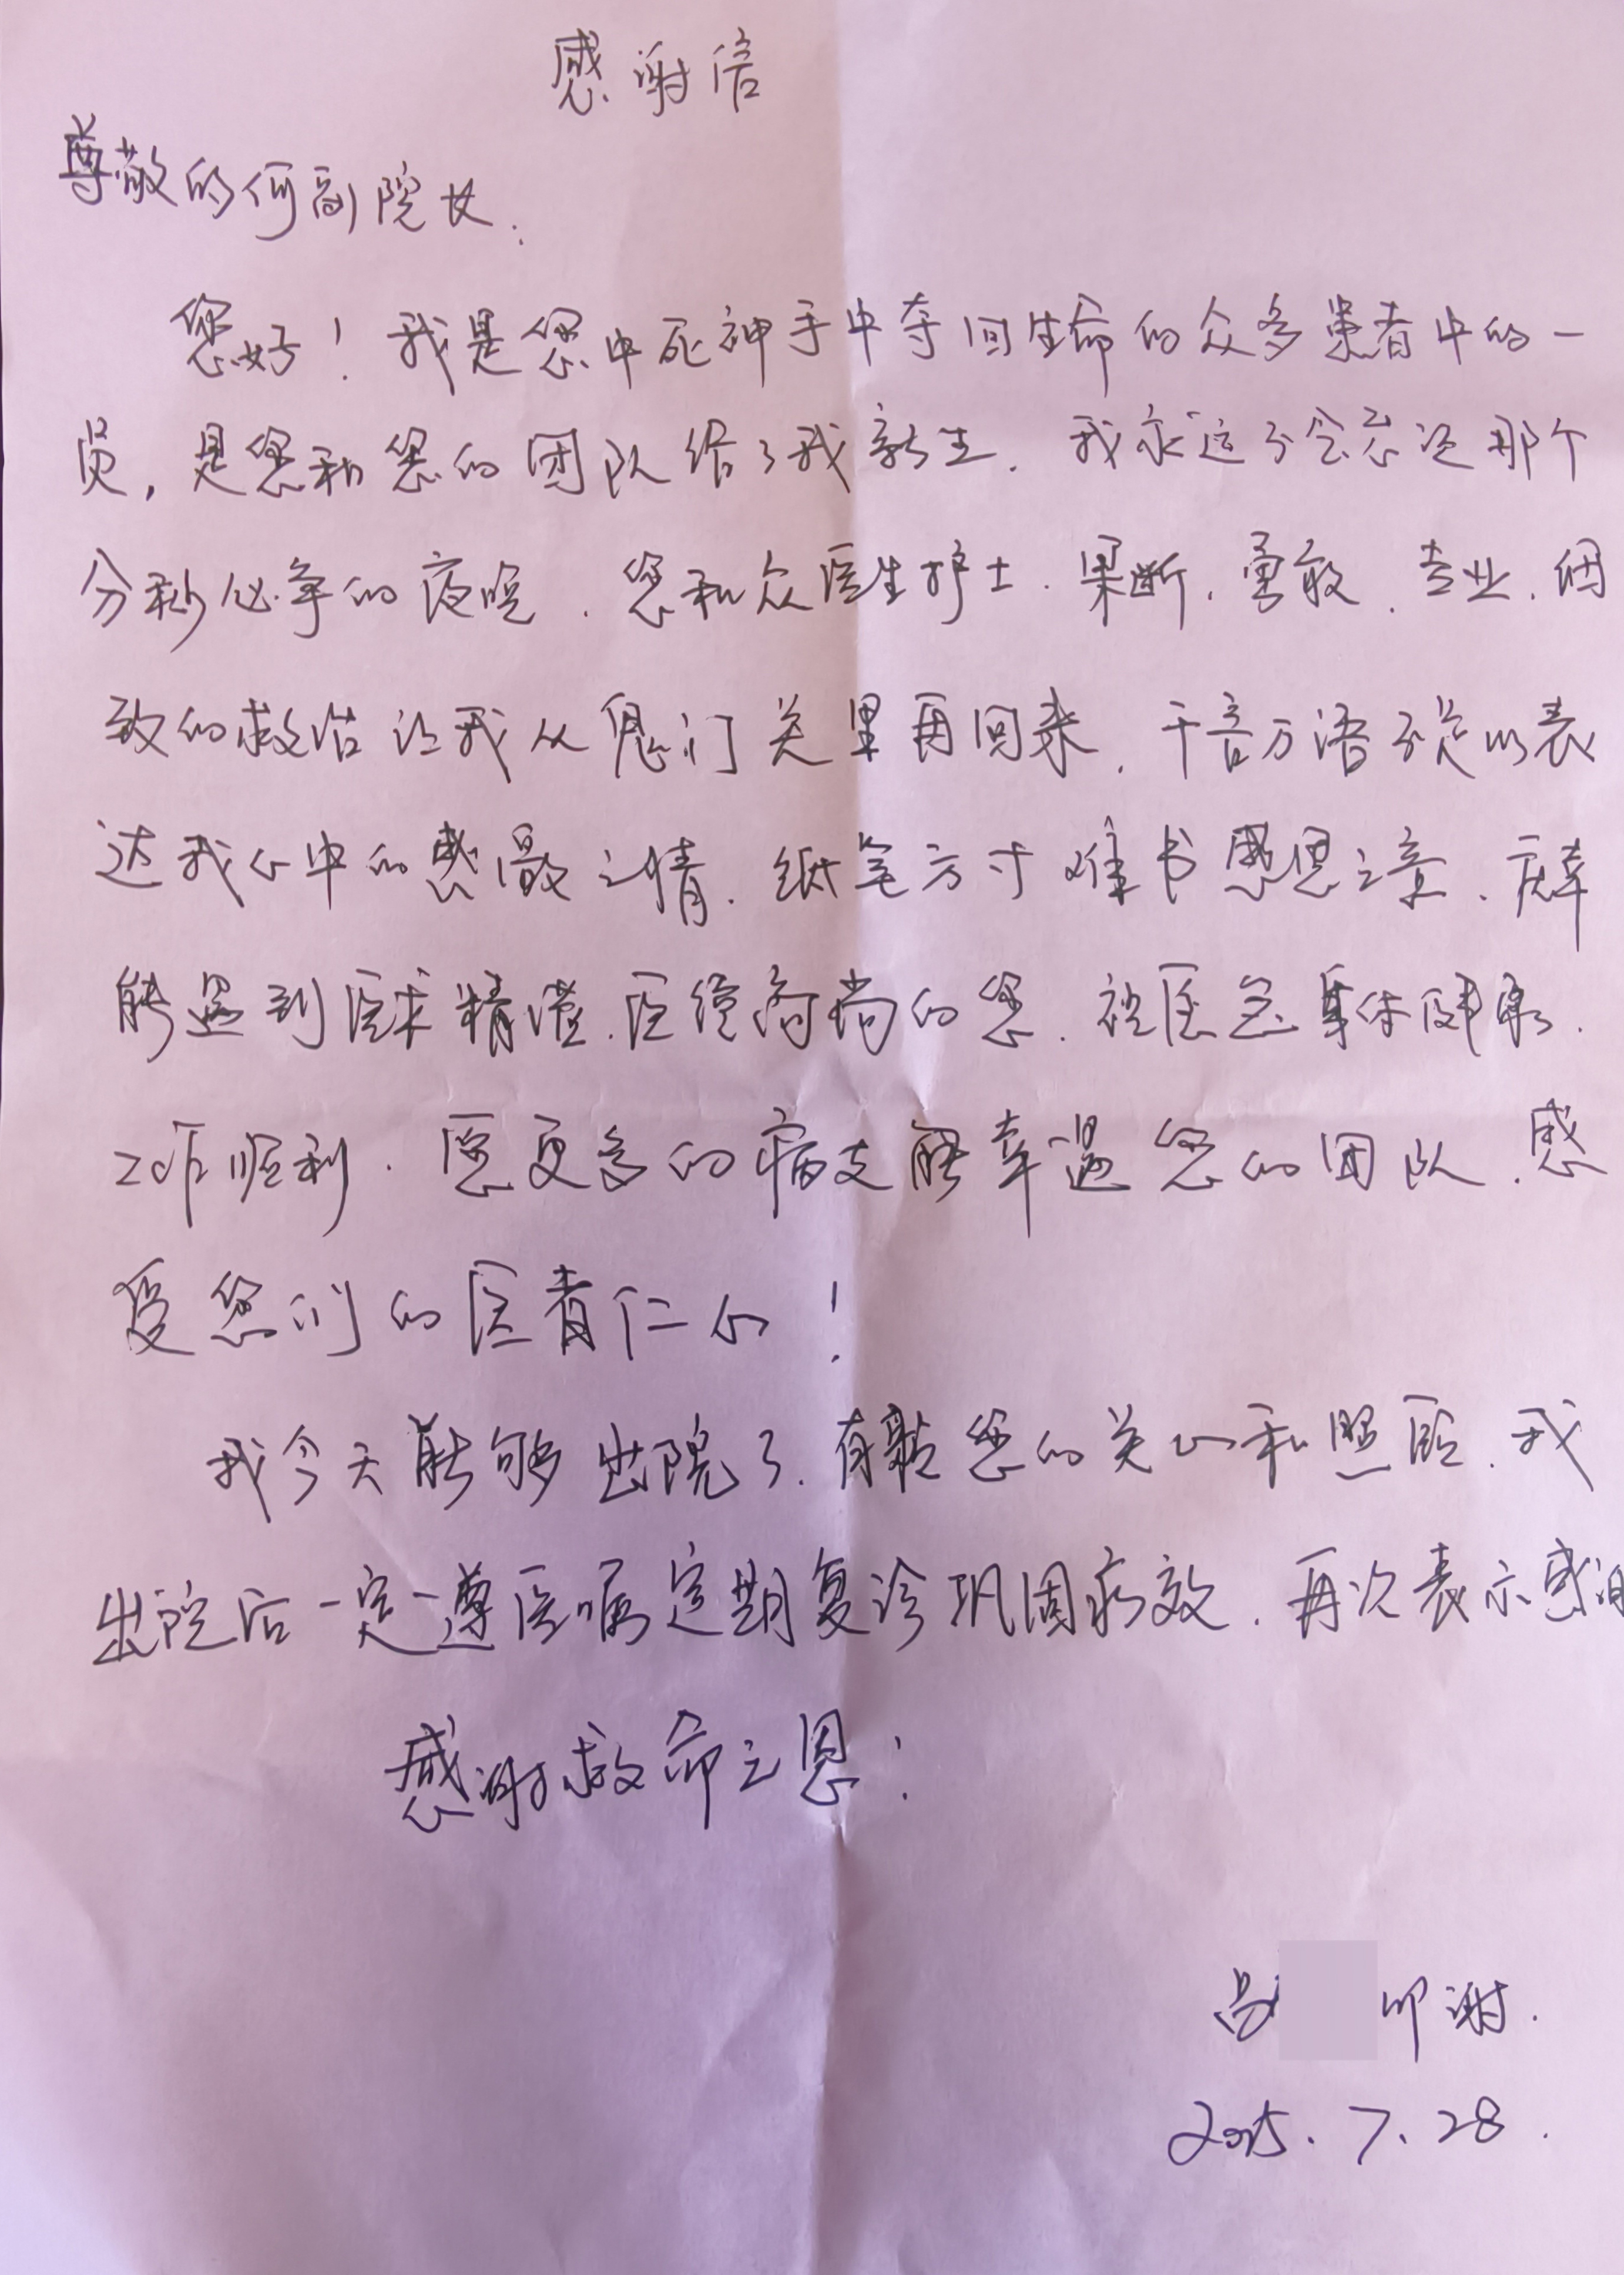 感谢信
尊敬的何副院长.
您好！我是您中死神手中夺回生命的众多患者中的一
员，是您和您的团队给了我新生. 我永远不会忘记那个
分秒必争的夜晚. 您和众医生护士. 果断. 勇敢. 专业. 细
致的救治让我从鬼门关里再回来. 千言万语不足以表
达我心中的感激之情. 纸笔方寸难书感恩之意. 庆幸
能遇到医术精湛. 医德高尚的您. 祝医您身体健康.
工作顺利. 愿更多的病友能幸遇您的团队. 感
受您们的医者仁心！
我今天能够出院了. 有靠您的关心和照顾. 我
出院后一定遵医嘱定期复诊巩固疗效. 再次表示感谢
感谢救命之恩！
吕 叩谢.
2025.7.28.